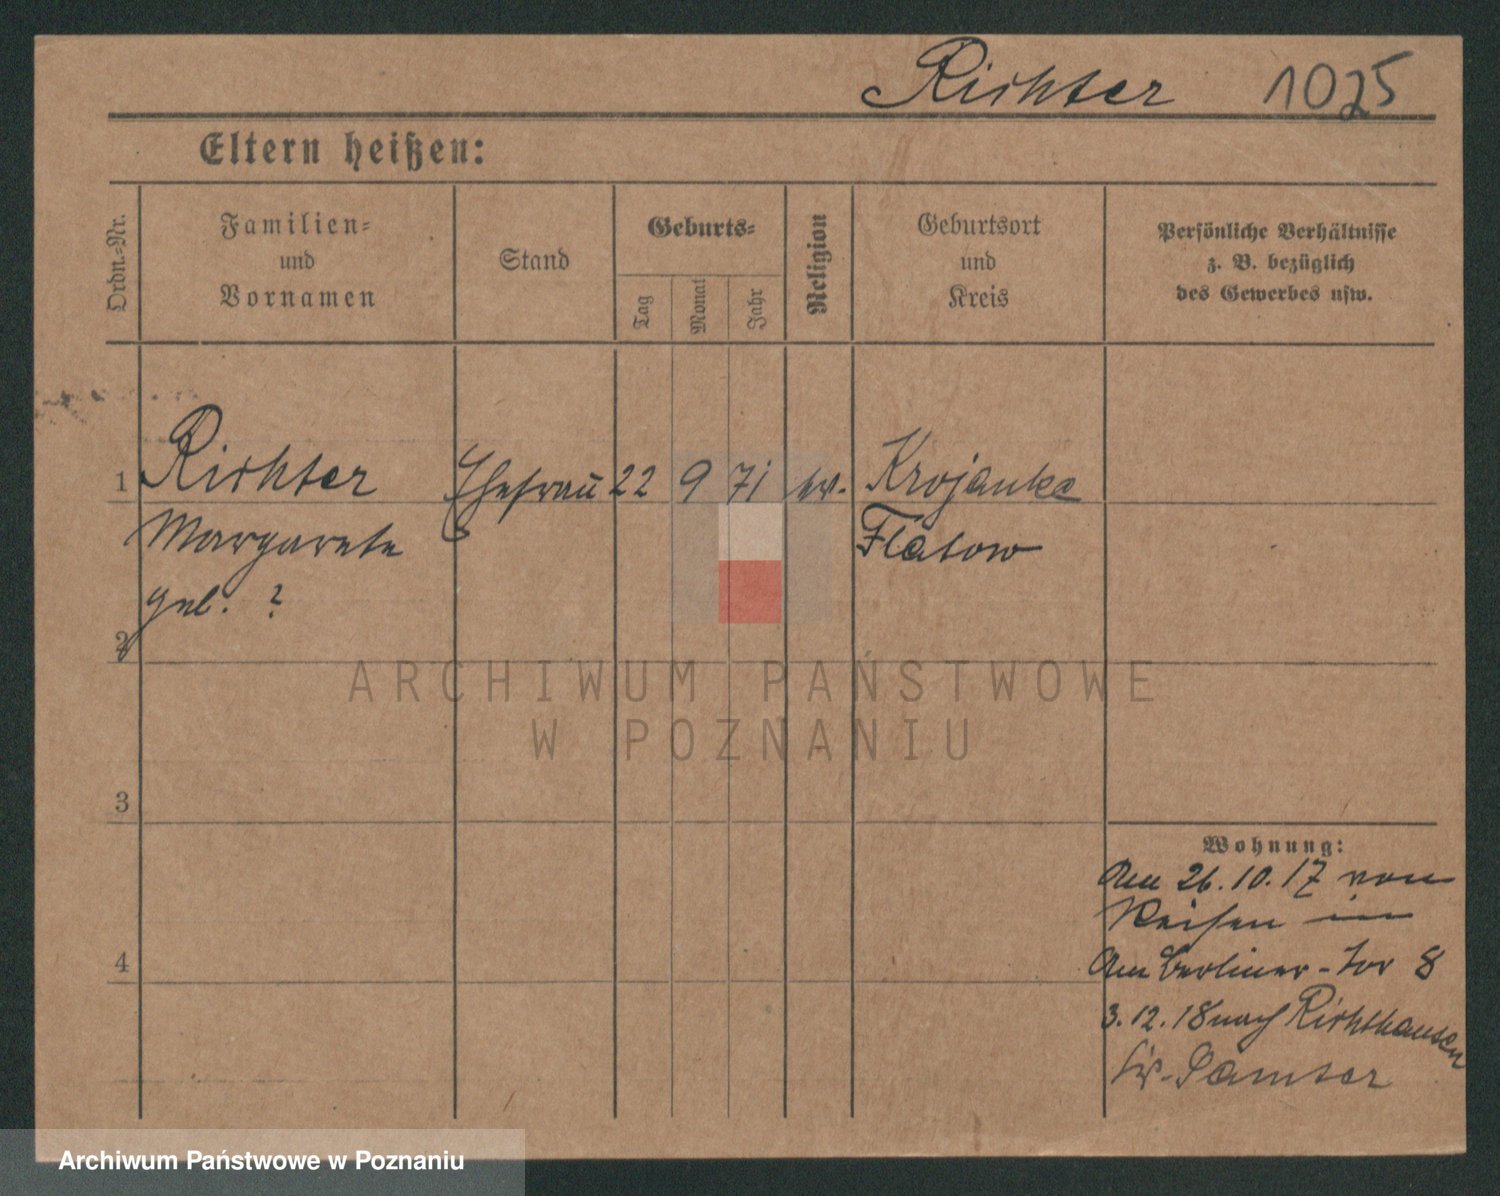 Richter 1025
Eltern heißen:
Ordn.-Nr.
Familien-
und
Vornamen
Stand
Geburts-
Tag
Monat
Jahr
Religion
Geburtsort
und
Kreis
Persönliche Verhältnisse
z. B. bezüglich
des Gewerbes usw.
1 Richter Ehefrau 22 9 71 ev. Krojanke
Margarete Flatow
geb. ?
2
ARCHIWUM PAŃSTWOWE
W POZNANIU
3
Wohnung:
Am 26.10.17 von
Reisen in
Am Berliner-Tor 8
4
3.12.18 nach Richthausen
Kr. Samter
Archiwum Państwowe w Poznaniu